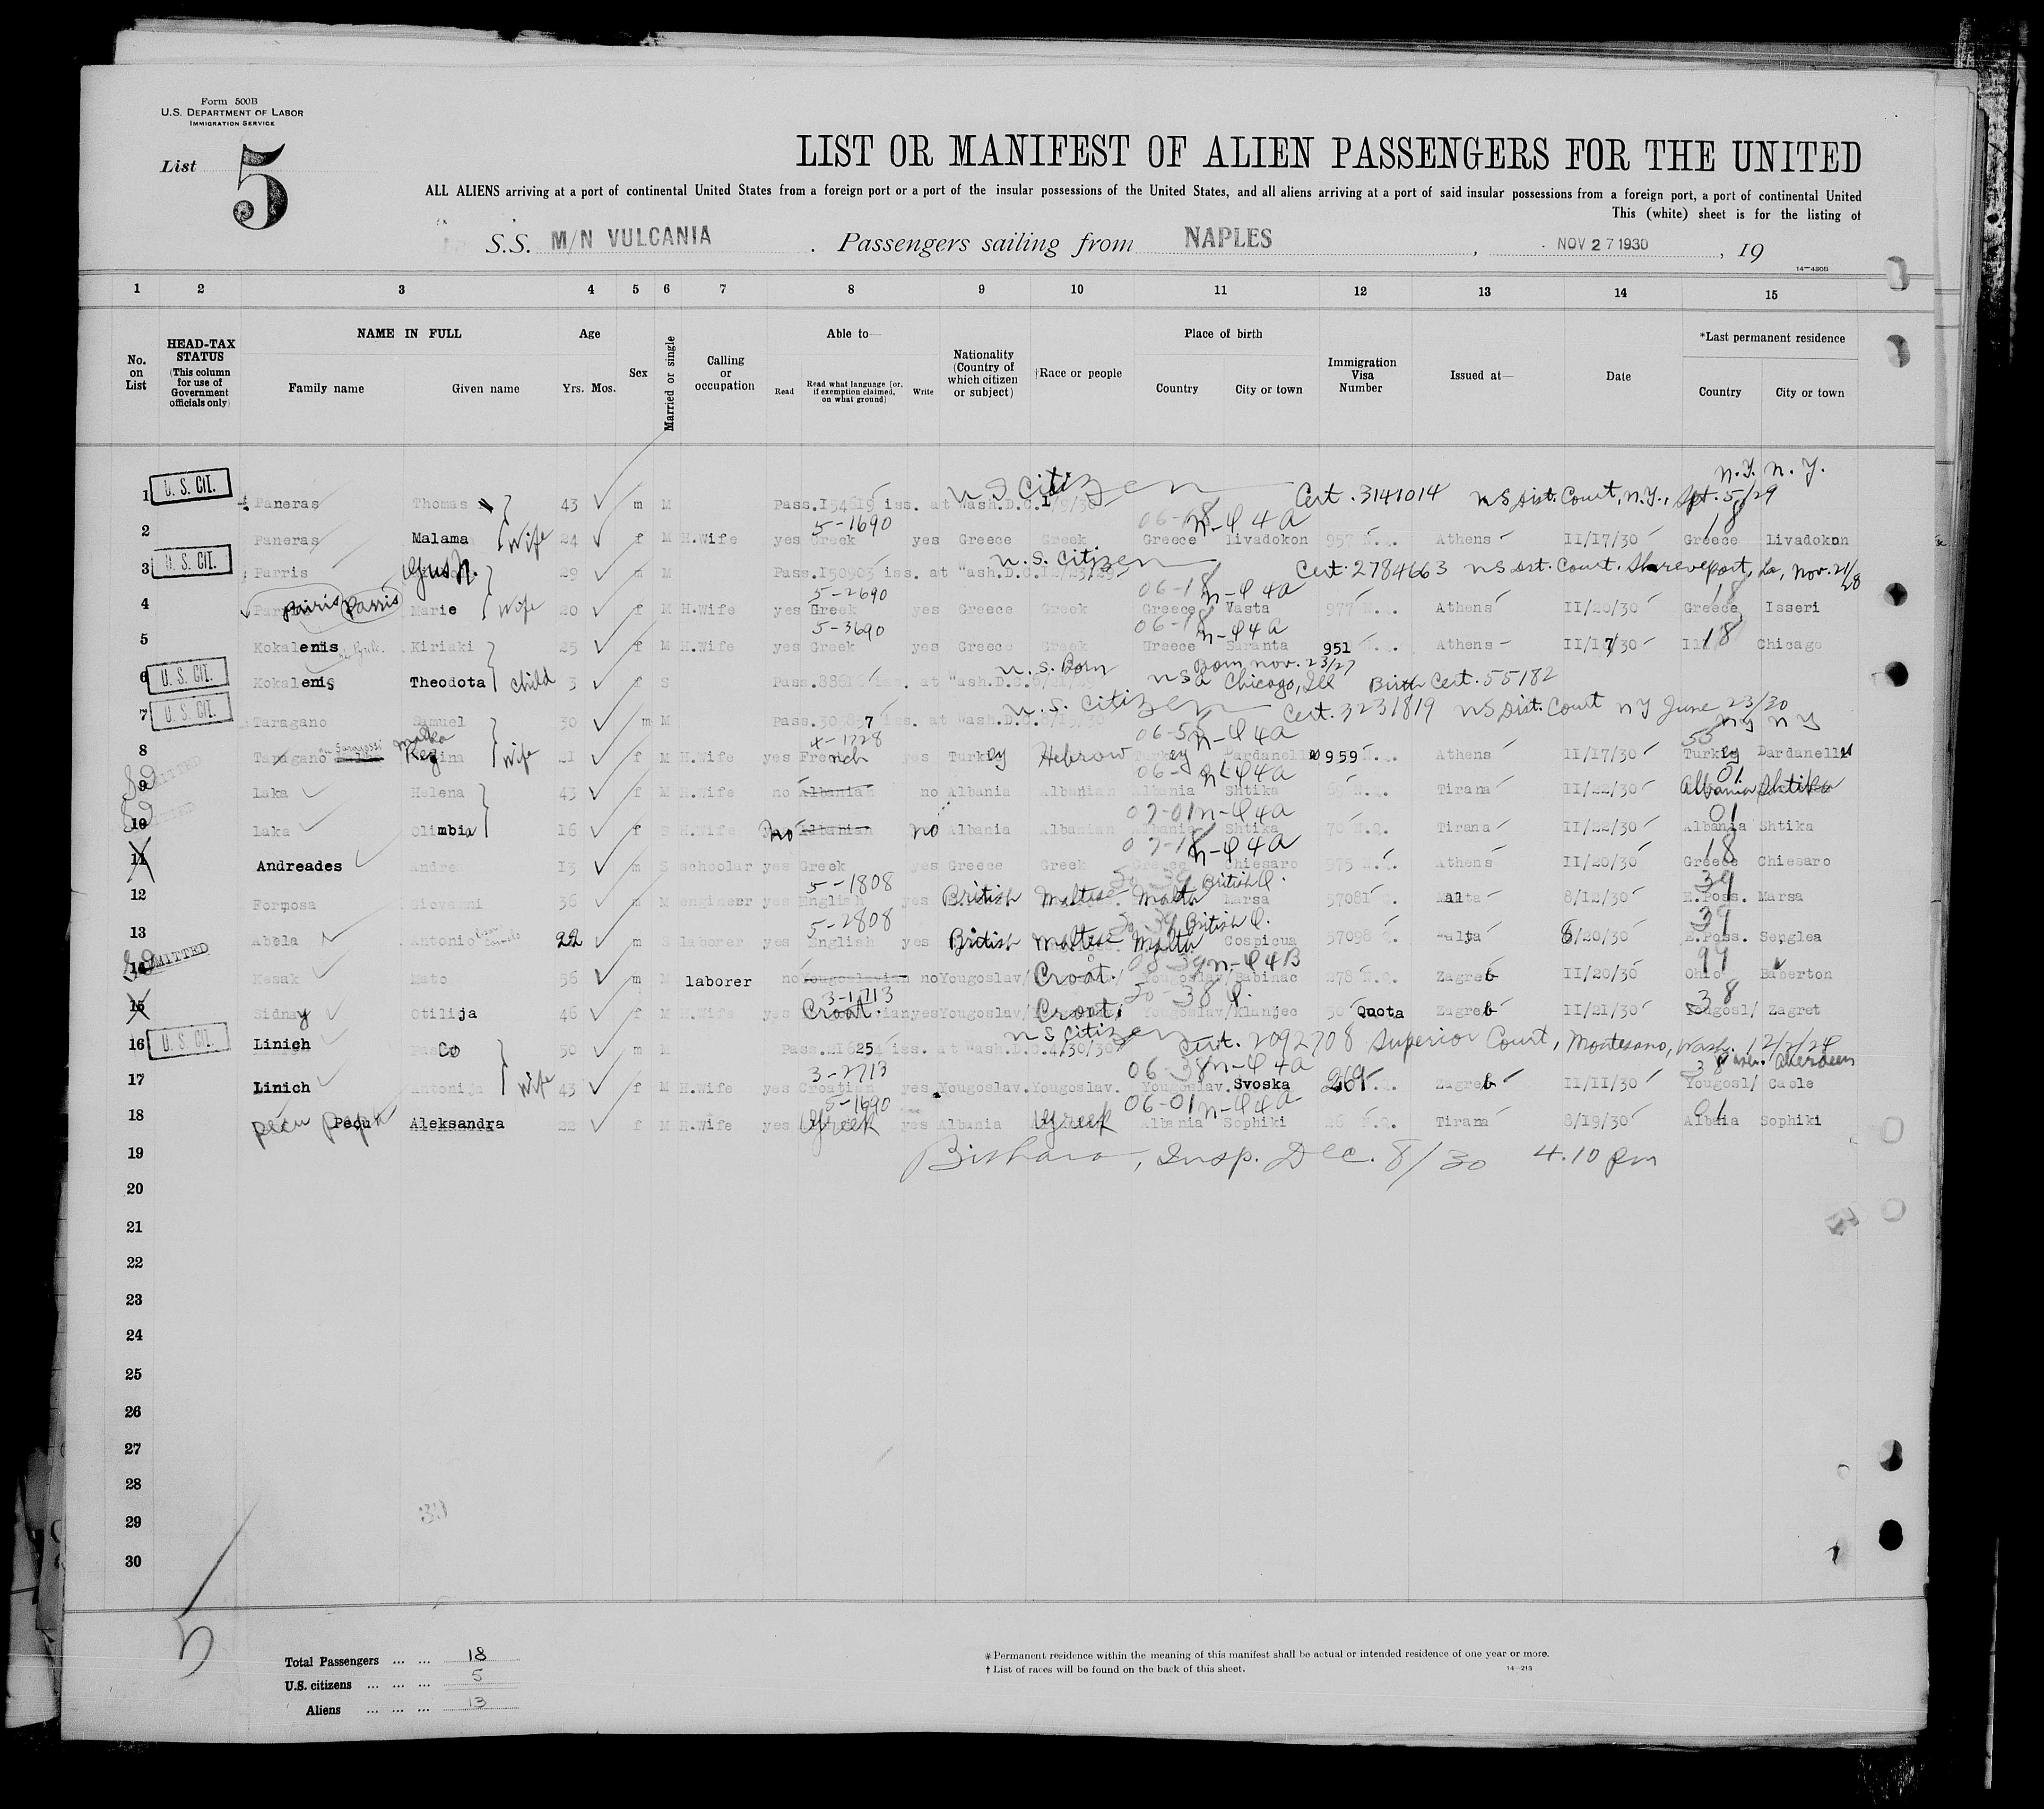 Form 500B
U.S. DEPARTMENT OF LABOR
IMMIGRATION SERVICE
List 5
LIST OR MANIFEST OF ALIEN PASSENGERS FOR THE UNITED
ALL ALIENS arriving at a port of continental United States from a foreign port or a port of the insular possessions of the United States, and all aliens arriving at a port of said insular possessions from a foreign port, a port of continental United
This (white) sheet is for the listing of
S.S. M/N VULCANIA . Passengers sailing from NAPLES , NOV 27 1930 , 19
14—430B
1 2 3 4 5 6 7 8 9 10 11 12 13 14 15
No. on List
HEAD-TAX STATUS (This column for use of Government officials only)
NAME IN FULL Family name Given name
Age Yrs. Mos.
Sex
Married or single
Calling or occupation
Able to— Read Read what language [or, if exemption claimed, on what ground] Write
Nationality (Country of which citizen or subject)
†Race or people
Place of birth Country City or town
Immigration Visa Number
Issued at—
Date
*Last permanent residence Country City or town
N.Y. N.Y.
1 U. S. CIT. Paneras Thomas 43 m M Pass. iss. at Wash.D.C. U S Citizen Cert. 3141014 US Dist. Court, N.Y., Spt. 5/29
5-1690 N-Q4A 18
2 Paneras Malama Wife 24 f M H.Wife yes Greek yes Greece Greek Greece Livadokon 957 N.Q. Athens 11/17/30 Greece Livadokon
3 U. S. CIT. Parris Gus N. 29 m M Pass. iss. at Wash.D.C. U.S. Citizen Cert. 2784663 US Dist. Court. Shreveport, La, Nov. 21/28
5-2690 06-18 N-Q4A 18
4 Parris Marie Wife 20 f M H.Wife yes Greek yes Greece Greek Greece Vasta 977 N.Q. Athens 11/20/30 Greece Isseri
5-3690 06-18 N-Q4A
5 Kokalenis Kiriaki 25 f M H.Wife yes Greek yes Greece Greek Greece Saranta 951 N.Q. Athens 11/17/30 18 Chicago
6 U. S. CIT. Kokalenis Theodota child 3 f S Pass. iss. at Wash.D.C. U.S. Born USA Born Nov. 23/27 Chicago, Ill Birth Cert. 55182
7 U. S. CIT. Taragano Samuel 30 m M Pass. iss. at Wash.D.C. U.S. Citizen Cert. 3231819 US Dist. Court N Y June 23/30
N Y N Y
4-1728 N-Q4A 55
8 Taragano Malka Regina Wife 21 f M H.Wife yes French yes Turkey Hebrew Turkey Dardanelles 959 N.Q. Athens 11/17/30 Turkey Dardanelles
N-Q4A 01
9 Laka Helena 43 f M H.Wife no Albanian no Albania Albanian Albania Shtika N.Q. Tirana 11/22/30 Albania Shtika
07-01 N-Q4A 01
10 Laka Olimbia 16 f S H.Wife no Albanian no Albania Albanian Albania Shtika 70 N.Q. Tirana 11/22/30 Albania Shtika
07-18 N-Q4A 18
11 Andreades 13 m S schoolar yes Greek yes Greece Greek Greece Chiesaro 975 N.Q. Athens 11/20/30 Greece Chiesaro
5-1808 British Q. 39
12 Formosa Giovanni 36 m M engineer yes English yes British Maltese Malta Marsa 57081 Malta 8/12/30 E.Poss. Marsa
5-2808 British Q. 39
13 Abela Antonio 22 m S laborer yes English yes British Maltese Malta Cospicua 57098 Malta 8/20/30 E.Poss. Senglea
N-Q4B 99
14 Kesak Mato 56 m M laborer no Yougoslavian no Yougoslav/ Croat. Yougoslav/ Babinac 278 N.Q. Zagreb 11/20/30 Ohio Baberton
3-1713 38 Q. 38
15 Sidney Otilija 46 f M H.Wife yes Croat. yes Yougoslav/ Croat. Yougoslav/ Klanjec Quota Zagreb 11/21/30 Yougosl/ Zagret
16 U. S. CIT. Linich 50 m M Pass. iss. at Wash.D.C. 4/30/30 U S Citizen Cert. 2092708 Superior Court, Montesano, Wash. 12/2/24
3-2713 06-38 N-Q4A 38 Aberdeen
17 Linich Antonija Wife 43 f M H.Wife yes Croatian yes Yougoslav. Yougoslav. Yougoslav. Svoska 269 N.Q. Zagreb 11/11/30 Yougosl/ Caole
5-1690 06-01 N-Q4A 01
18 Pecu Aleksandra 22 f M H.Wife yes Greek yes Albania Greek Albania Sophiki 26 N.Q. Tirana 8/19/30 Albania Sophiki
19 Bishara, Insp. Dec. 8/30 4.10 pm
20
21
22
23
24
25
26
27
28
29
30
5
Total Passengers ... ... 18
U.S. citizens ... ... ... 5
Aliens ... ... ... 13
* Permanent residence within the meaning of this manifest shall be actual or intended residence of one year or more.
† List of races will be found on the back of this sheet.
14—213